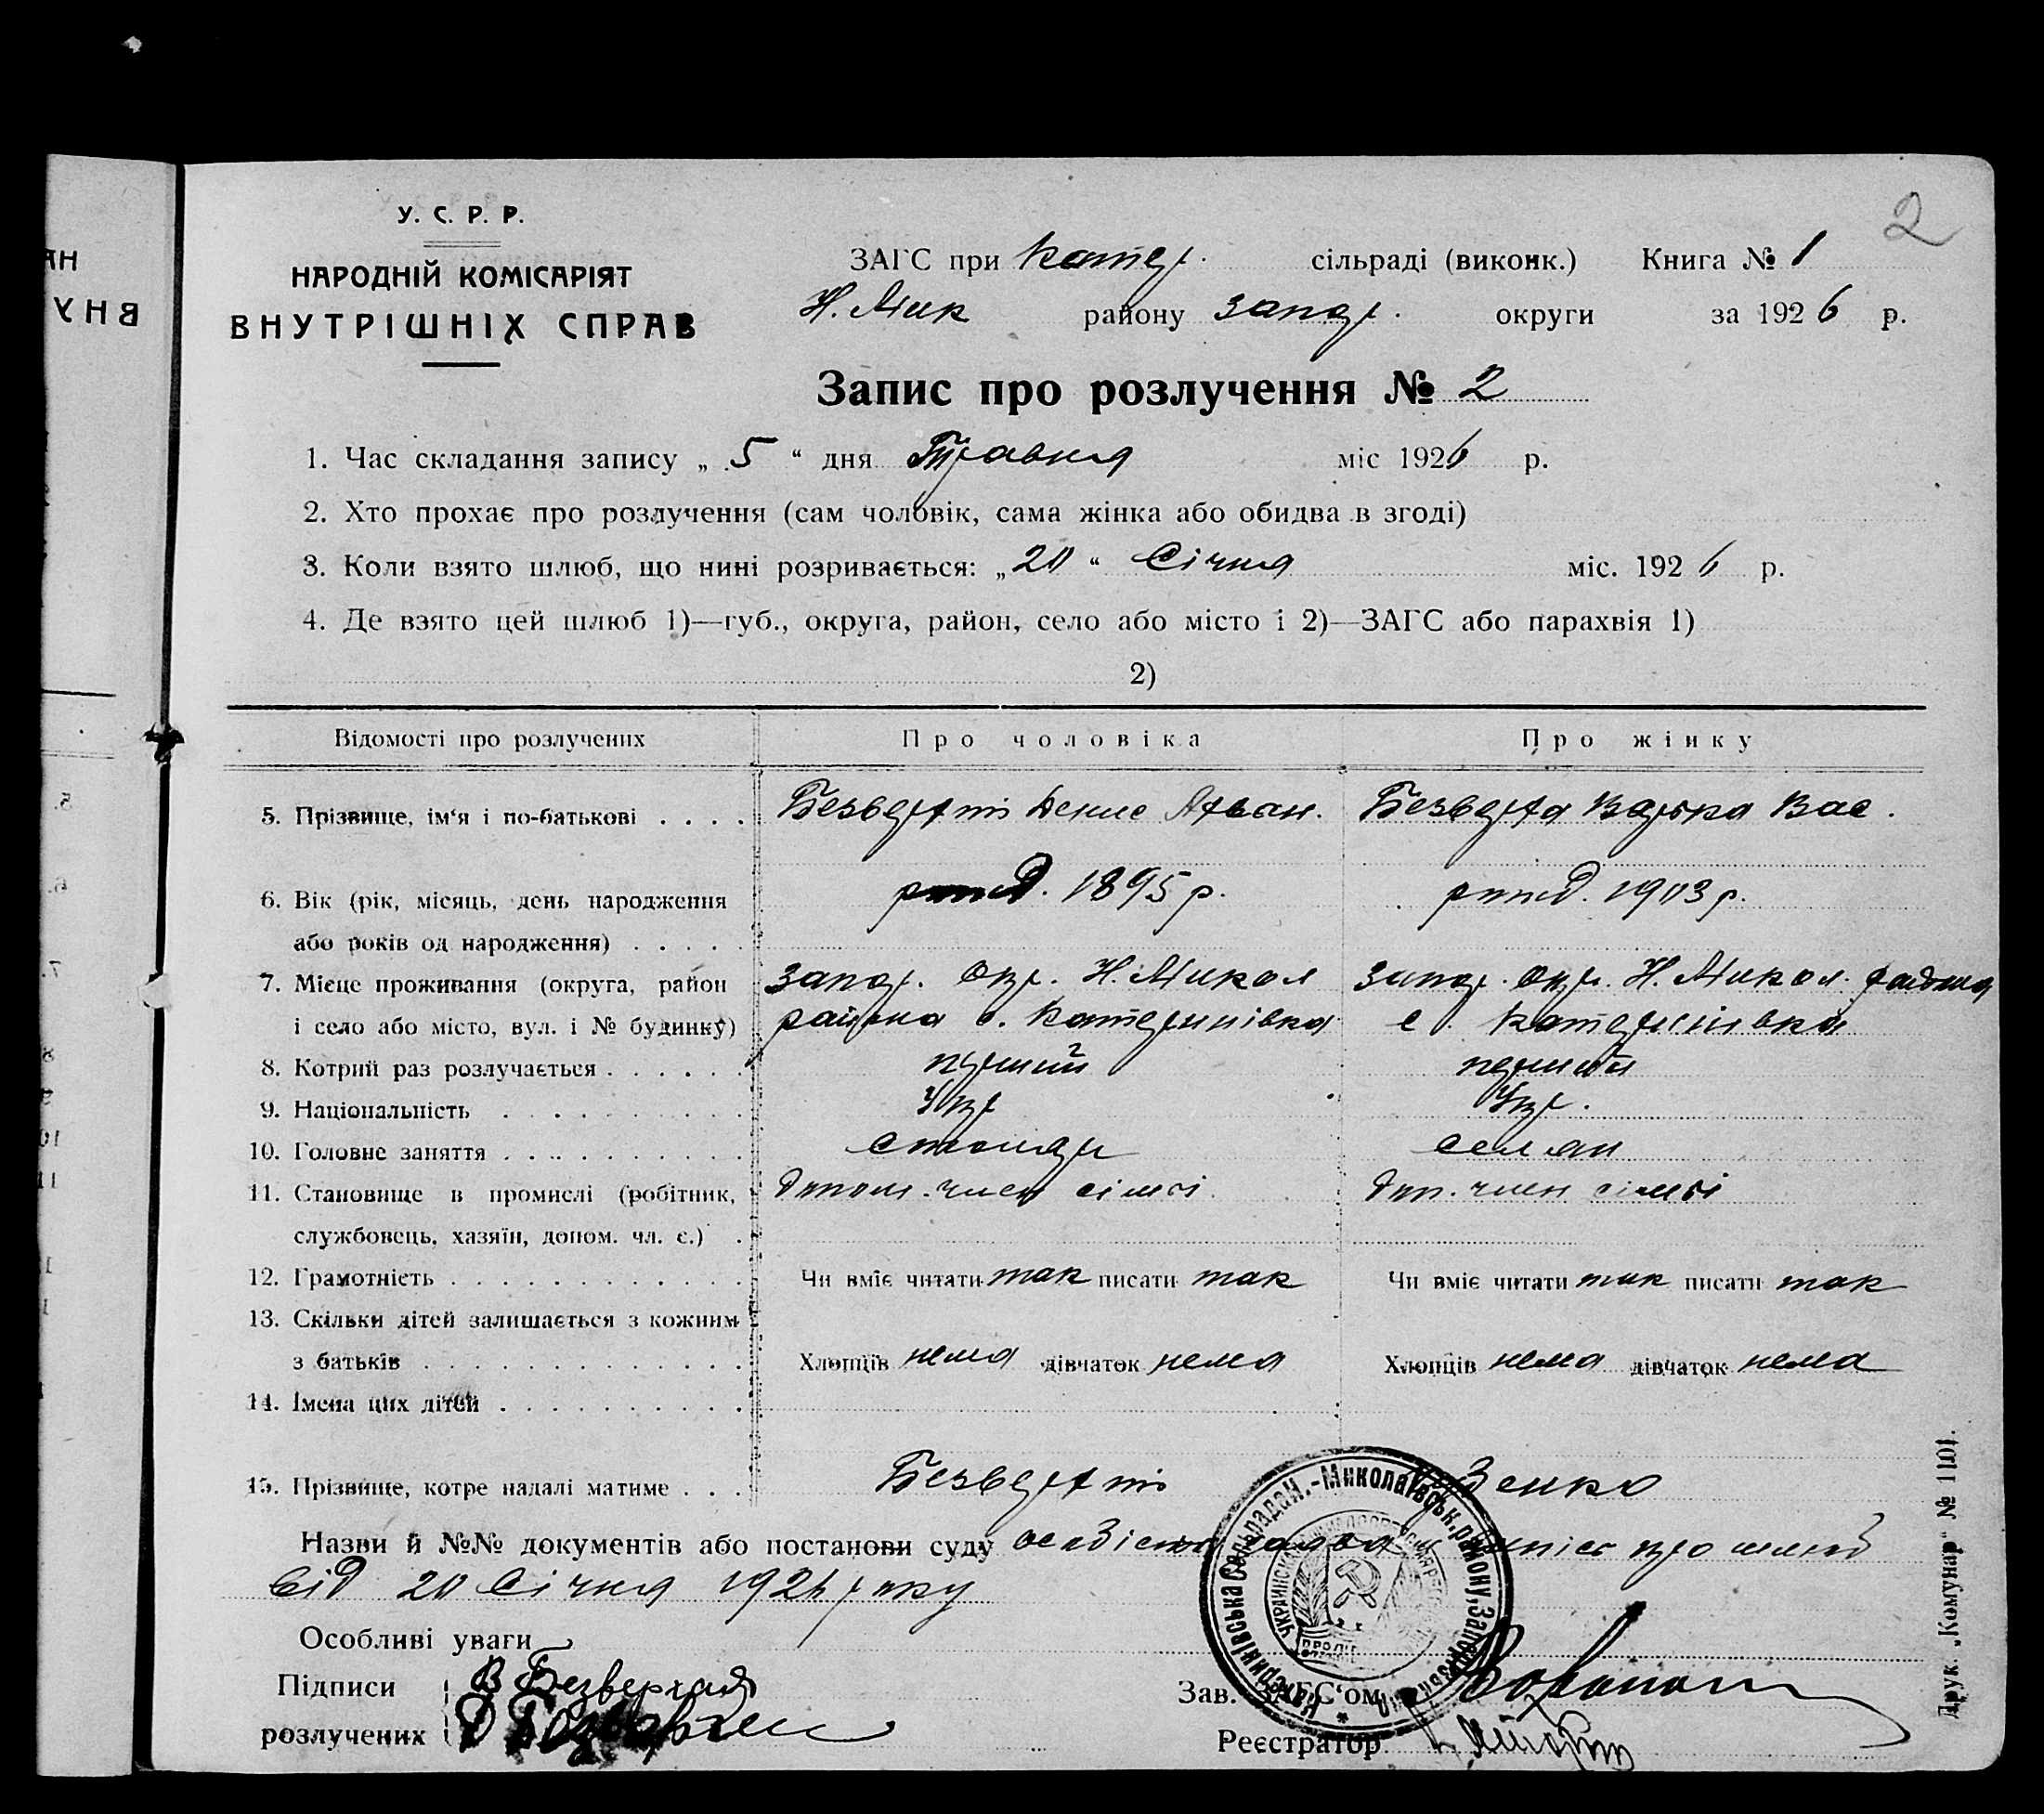 2
У. С. Р. Р.
НАРОДНІЙ КОМІСАРІЯТ
ВНУТРІШНІХ СПРАВ
ЗАГС при Катер. сільраді (виконк.) Книга № 1
Н. Мик району Запор. округи за 1926 р.
Запис про розлучення № 2
1. Час складання запису „ 5 “ дня Травня міс 1926 р.
2. Хто прохає про розлучення (сам чоловік, сама жінка або обидва в згоді)
3. Коли взято шлюб, що нині розривається: „20“ Січня міс. 1926 р.
4. Де взято цей шлюб 1)—губ., округа, район, село або місто і 2)—ЗАГС або парахвія 1)
2)
Відомості про розлучених Про чоловіка Про жінку
5. Прізвище, ім‘я і по-батькові . . . . Денис Безверха Варка Вас.
6. Вік (рік, місяць, день народження рожд. 1895 р. рожд. 1903 р.
або років од народження) . . . . .
7. Місце проживання (округа, район Запор. Окр. Н. Микол Запор. Окр. Н. Микол. района
і село або місто, вул. і № будинку) района с. Катеринівка с. Катеринівка
8. Котрий раз розлучається . . . . . . перший перший
9. Національність . . . . . . . . . Укр Укр.
10. Головне заняття . . . . . . . . . . столяр селян
11. Становище в промислі (робітник, допом. член сімї доп. член сімї
службовець, хазяїн, допом. чл. с.) .
12. Грамотність . . . . . . . . . . . . Чи вміє читати так писати так Чи вміє читати так писати так
13. Скільки дітей залишається з кожним
з батьків . . . . . . . . . . . . . Хлопців нема дівчаток нема Хлопців нема дівчаток нема
14. Імена цих дітей . . . . . . . . . .
15. Прізвище, котре надалі матиме . . . Зенко
Назви й №№ документів або постанови суду заява запис про шлюб
від 20 Січня 1926 року
Особливі уваги
Підписи В Безверхая
розлучених
Зав. ЗАГС‘ом
Реєстратор
Катеринівська Сельрада Н.-Миколаївськ. району, Запорізьк.
Друк. „Комунар“ № 1101.